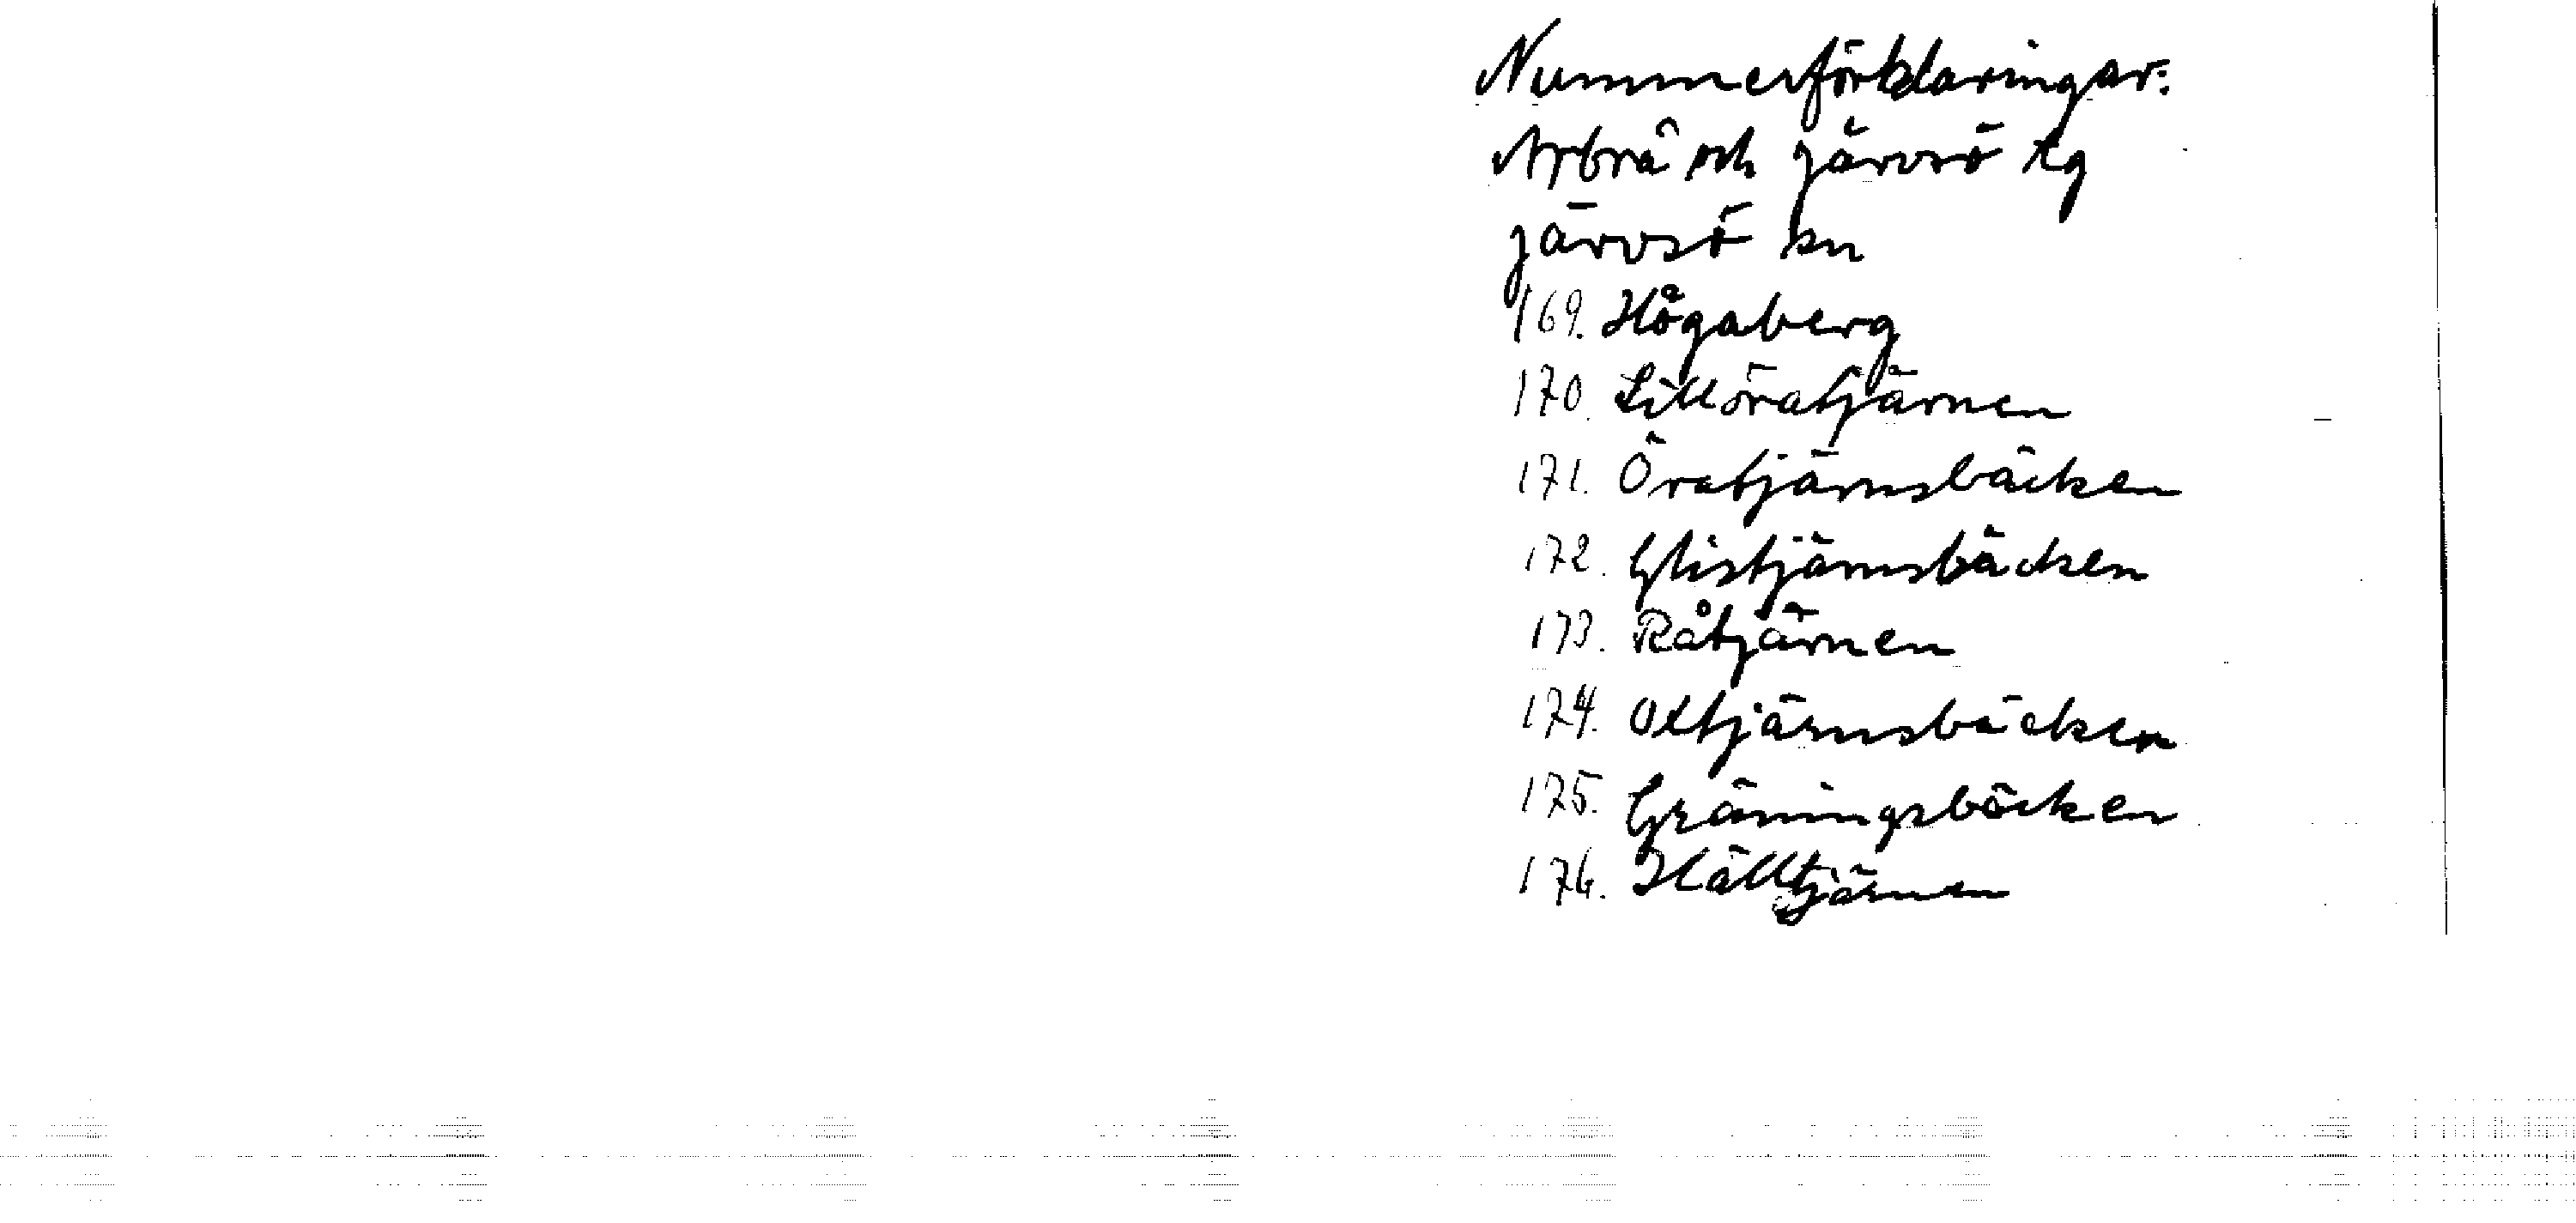 Nummerförklaringar:
Arbrå och Järvsö tg
Järvsö sn
169. Högaberg
170. Lillöratjärnen
171. Öratjärnsbäcken
172. Glistjärnsbäcken
173. Råtjärnen
174. Oxtjärnsbäcken
175. Gräningsbäcken
176. Hälltjärnen